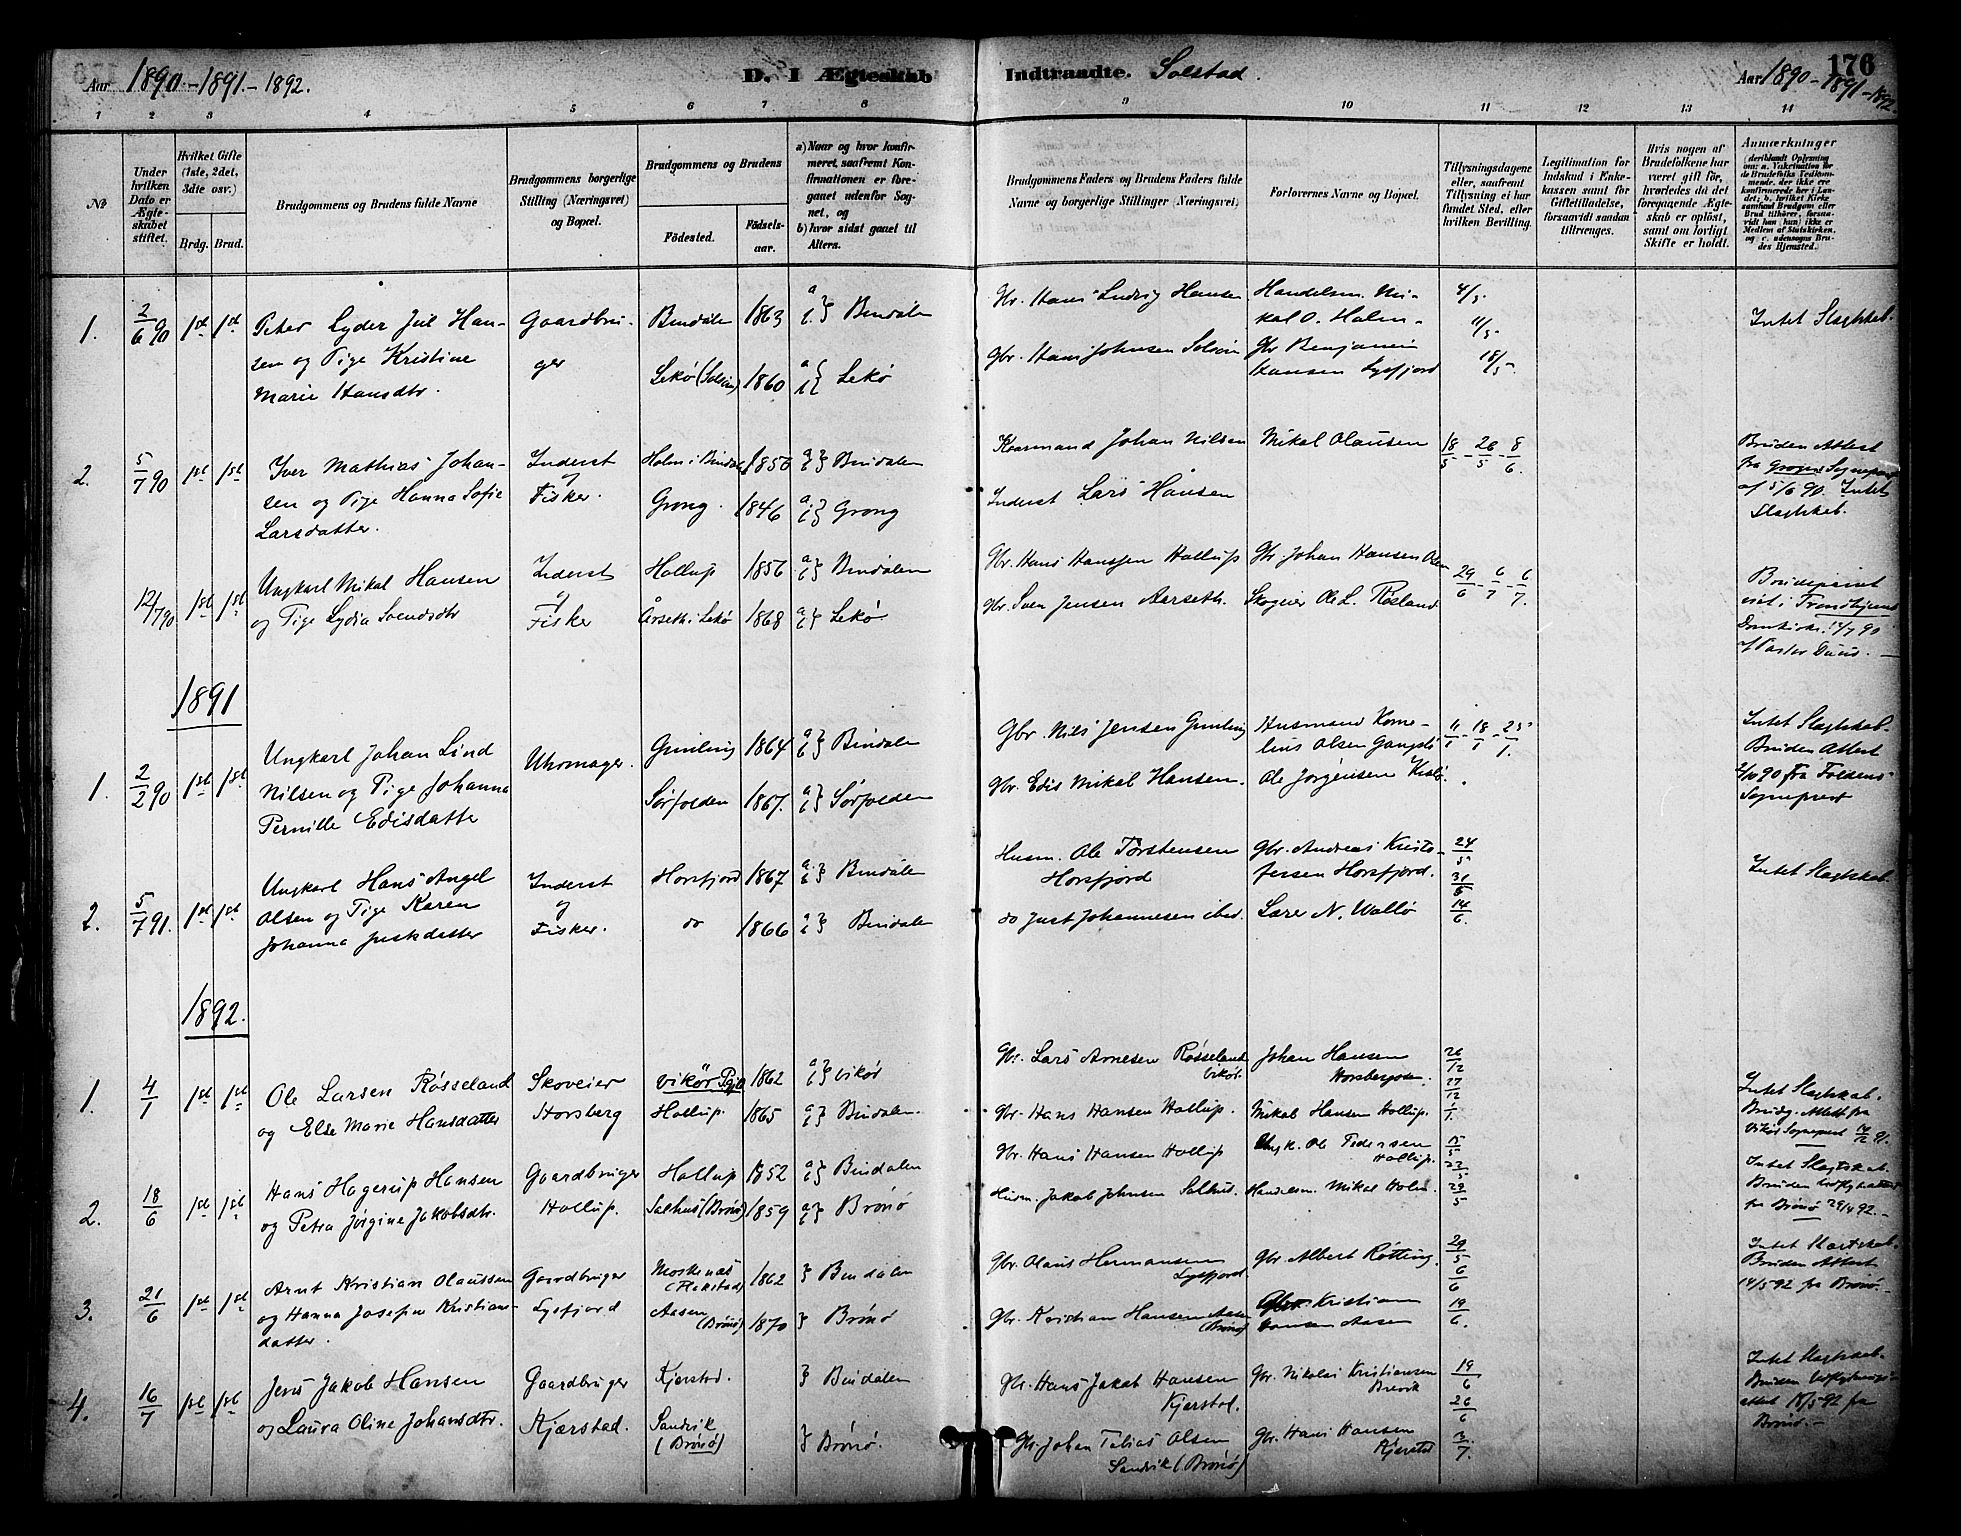 Aar 1890-1891-1892.
D. I Ægteskab
Indtraadte. Solstad.
Aar 1890-1891-1892
176
1 2 3 4 5 6 7 8 9 10 11 12 13 14
№
Under hvilken Dato er Ægteskabet stiftet.
Hvilket Gifte (1ste, 2det, 3dte osv.)
Brdg. Brud.
Brudgommens og Brudens fulde Navne
Brudgommens borgerlige Stilling (Næringsvei) og Bopæl.
Brudgommens og Brudens
Födested.
Födselsaar.
a) Naar og hvor konfirmeret, saafremt Konfirmationen er foregaaet udenfor Sognet, og
b) hvor sidst gaaet til Alters.
Brudgommens Faders og Brudens Faders fulde Navne og borgerlige Stillinger (Næringsvei)
Forlovernes Navne og Bopæl.
Tillysningsdagene eller, saafremt Tillysning ei har fundet Sted, efter hvilken Bevilling.
Legitimation for Indskud i Enkekassen samt for Giftetilladelse, forsaavidt saadan tiltrænges.
Hvis nogen af Brudefolkene har været gift før, hvorledes da det foregaaende Ægteskab er oplöst, samt om lovligt Skifte er holdt.
Anmærkninger
1. 2/6 90 1st 1st Peter Lyder Juil Han- Gaardbru- Bindalen 1863 a b } Bindalen Gbr. Hans Ludvig Hansen Handelsm. Mi- 4/5
sen og Pige Kristine ger kal O. Holm 11/5 Intet Slagtskab.
Marie Hansdtr. Lekø (Solsem) 1860 a b } Lekø Gbr. Hans Johnsen Solsem Gbr Benjamin 18/5
Hansen Lysfjord
2. 5/7 90 1st 1st Iver Mathias Johan- Inderst Holm i Bindal 1856 a b } Bindalen Kaarmand Johan Nilsen Mikal Olausen 18/5 - 26/5 - 8/6. Bruden Attest
sen og Pige Hanna Sofie og fra Grongs Sognepræst
Larsdatter. Fisker. Grong. 1846 a b } Grong Inderst Lars Hansen af 5/6 90. Intet
Slagtskab.
12/7 90 1st 1st Ungkarl Mikal Hansen Inderst Hollup 1856 a b } Bindalen Gbr. Hans Hanssen Hollup Gbr. Johan Hansen 29/6 - 6/7 - 6/7. Brudeparret
og Pige Lydia Svendsdtr og Fisker Årseth i Lekø 1868 a b } Lekø Gbr. Sven Jensen Aarseth. Skogeier Ole L. Røsland viet i Trondhjems
Domkirke 12/7 90
af Pastor
1891
1. 2/2 90 1st 1st Ungkarl Johan Lind Uhrmager. Gimling 1864 a b } Bindalen Gbr. Nils Jensen Gimling Husmand Korne- 11/1 - 18/1 - 25/1. Intet Slagtskab.
Nilsen og Pige Johanna lius Olsen Bruden Attest
Pernille Edisdatter Sørfolden 1867. a b } Sørfolden Gbr. Edis Mikal Hansen. Ole Jørgensen 90 fra Foldens
Sognepræst
2. 5/7 91. 1st 1st Ungkarl Hans Angel Inderst Horsfjord 1867 a b } Bindalen Husm. Ole Torstensen Gbr. Andreas Kristo- 24/5 Intet Slagtskab.
Olsen og Pige Karen og Horsfjord fersen Horsfjord. 31/5
Johanna Justdatter Fisker. do 1866 a b } Bindalen do Just Johannesen ibid. Lærer N. Wallø 14/6.
1892.
1. 4/1 1st 1st Ole Larsen Røsseland Skoveier Vikör Pgd 1862 a b } Vikör Gbr. Lars Arnesen Røsseland Johan Hansen 26/12 Intet Slagtskab.
Vikör. Horsbergosen. 27/12 Brudg. Attest fra
og Else Marie Hansdatter Horsberg Hollup. 1865 a b } Bindalen. Gbr. Hans Hansen Hollup. Mikal Hansen Hollup. 1/1. Vikör Sognepræst 14/12 91.
2. 18/6 1st 1st Hans Hagerup Hansen Gaardbruger Hollup 1852 a b } Bindalen Gbr. Hans Hansen Hollup Ungk. Ole Pedersen Hollup. 15/5 22/5 Intet Slagtskab.
og Petra Jørgine Jakobsdtr. Hollup. Salhus (Brönö) 1859 a b } Brönö Husm. Jakob Johnsen Salhus. Handelsm. Mikal Holm. 29/5 Bruden
fra Brönö 29/4 92.
3. 21/6 1st 1st Arnt Kristian Olaussen Gaardbruger Moskenæs (Flakstad) 1862 } Bindalen Gbr. Olaus Hermansen Lysfjord Gbr. Albert Røtting. 29/5 6/6 Intet Slagtskab.
og Hanna Josefine Kristians- Lysfjord Aasen (Brönö) 1870 } Brönö Gbr. Kristian Hansen Aasen (Brönö) Gbr. Kristian Hansen Aasen 19/6. Bruden Attest
datter. 14/5 92 fra Brönö.
4. 16/7 1st 1st Jens Jakob Hansen Gaardbruger Kjærstad. } Bindalen Gbr. Hans Jakob Hansen Kjærstad. Gbr. Nikolai Kristiansen Brevik 19/6 26/6 Intet Slagtskab.
og Laura Oline Johansdtr. Kjærstad. Sandvik (Brönö) } Brönö. Gbr. Johan Tobias Olsen Sandvik (Brönö) Gbr. Hans Hansen Kjærstad 3/7. Bruden
attest 18/5 92 fra
Brönö.